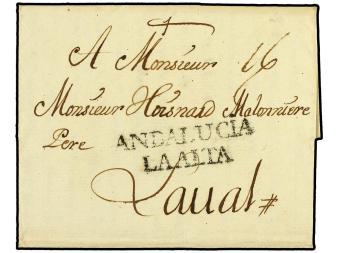 A Monsieur 16
Monsieur Hoisnard Malonniere
Pere
ANDALUCIA
LA ALTA
Laual